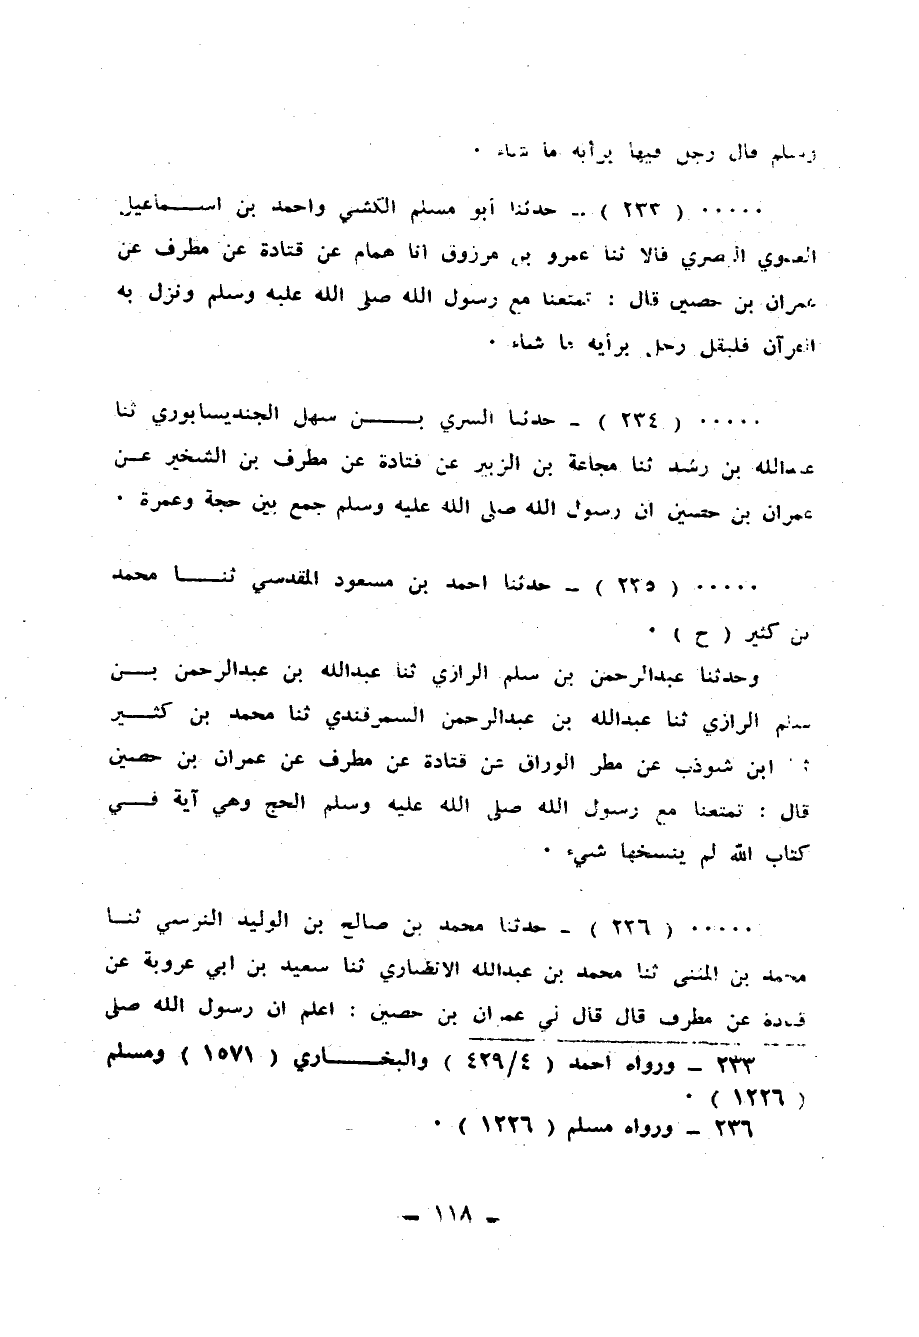 وسلم قال رجل فيها برأيه ما شاء ٠
٠٠٠٠٠ ( ٢٣٣ ) ـ حدثنا أبو مسلم الكشي واحمد بن اســـماعيل
العدوي البصري قالا ثنا عمرو بن مرزوق أنا همام عن قتادة عن مطرف عن
عمران بن حصين قال : تمتعنا مع رسول الله صلى الله عليه وسلم ونزل به
القرآن فليقل رجل برأيه ما شاء ٠
٠٠٠٠٠ ( ٢٣٤ ) ـ حدثنا السري بـــــن سهل الجنديسابوري ثنا
عبدالله بن رشد ثنا مجاعة بن الزبير عن قتادة عن مطرف بن الشخير عـن
عمران بن حصين ان رسول الله صلى الله عليه وسلم جمع بين حجة وعمرة ٠
٠٠٠٠٠ ( ٢٣٥ ) ـ حدثنا احمد بن مسعود المقدسي ثنـــا محمد
بن كثير ( ح ) ٠
وحدثنا عبدالرحمن بن سلم الرازي ثنا عبدالله بن عبدالرحمن بــن
سلم الرازي ثنا عبدالله بن عبدالرحمن السمرقندي ثنا محمد بن كثـــير
ثنا ابن شوذب عن مطر الوراق عن قتادة عن مطرف عن عمران بن حصين
قال : تمتعنا مع رسول الله صلى الله عليه وسلم الحج وهي آية فــي
كتاب الله لم ينسخها شيء ٠
٠٠٠٠٠ ( ٢٣٦ ) ـ حدثنا محمد بن صالح بن الوليد النرسي ثنــا
محمد بن المثنى ثنا محمد بن عبدالله الانصاري ثنا سعيد بن ابي عروبة عن
قتادة عن مطرف قال قال لي عمران بن حصين : اعلم ان رسول الله صلى
٢٣٣ ـ ورواه احمد ( ٤/٤٢٩ ) والبخـــــاري ( ١٥٧١ ) ومسلم
( ١٢٢٦ ) ٠
٢٣٦ ـ ورواه مسلم ( ١٢٢٦ ) ٠
ـ ١١٨ ـ